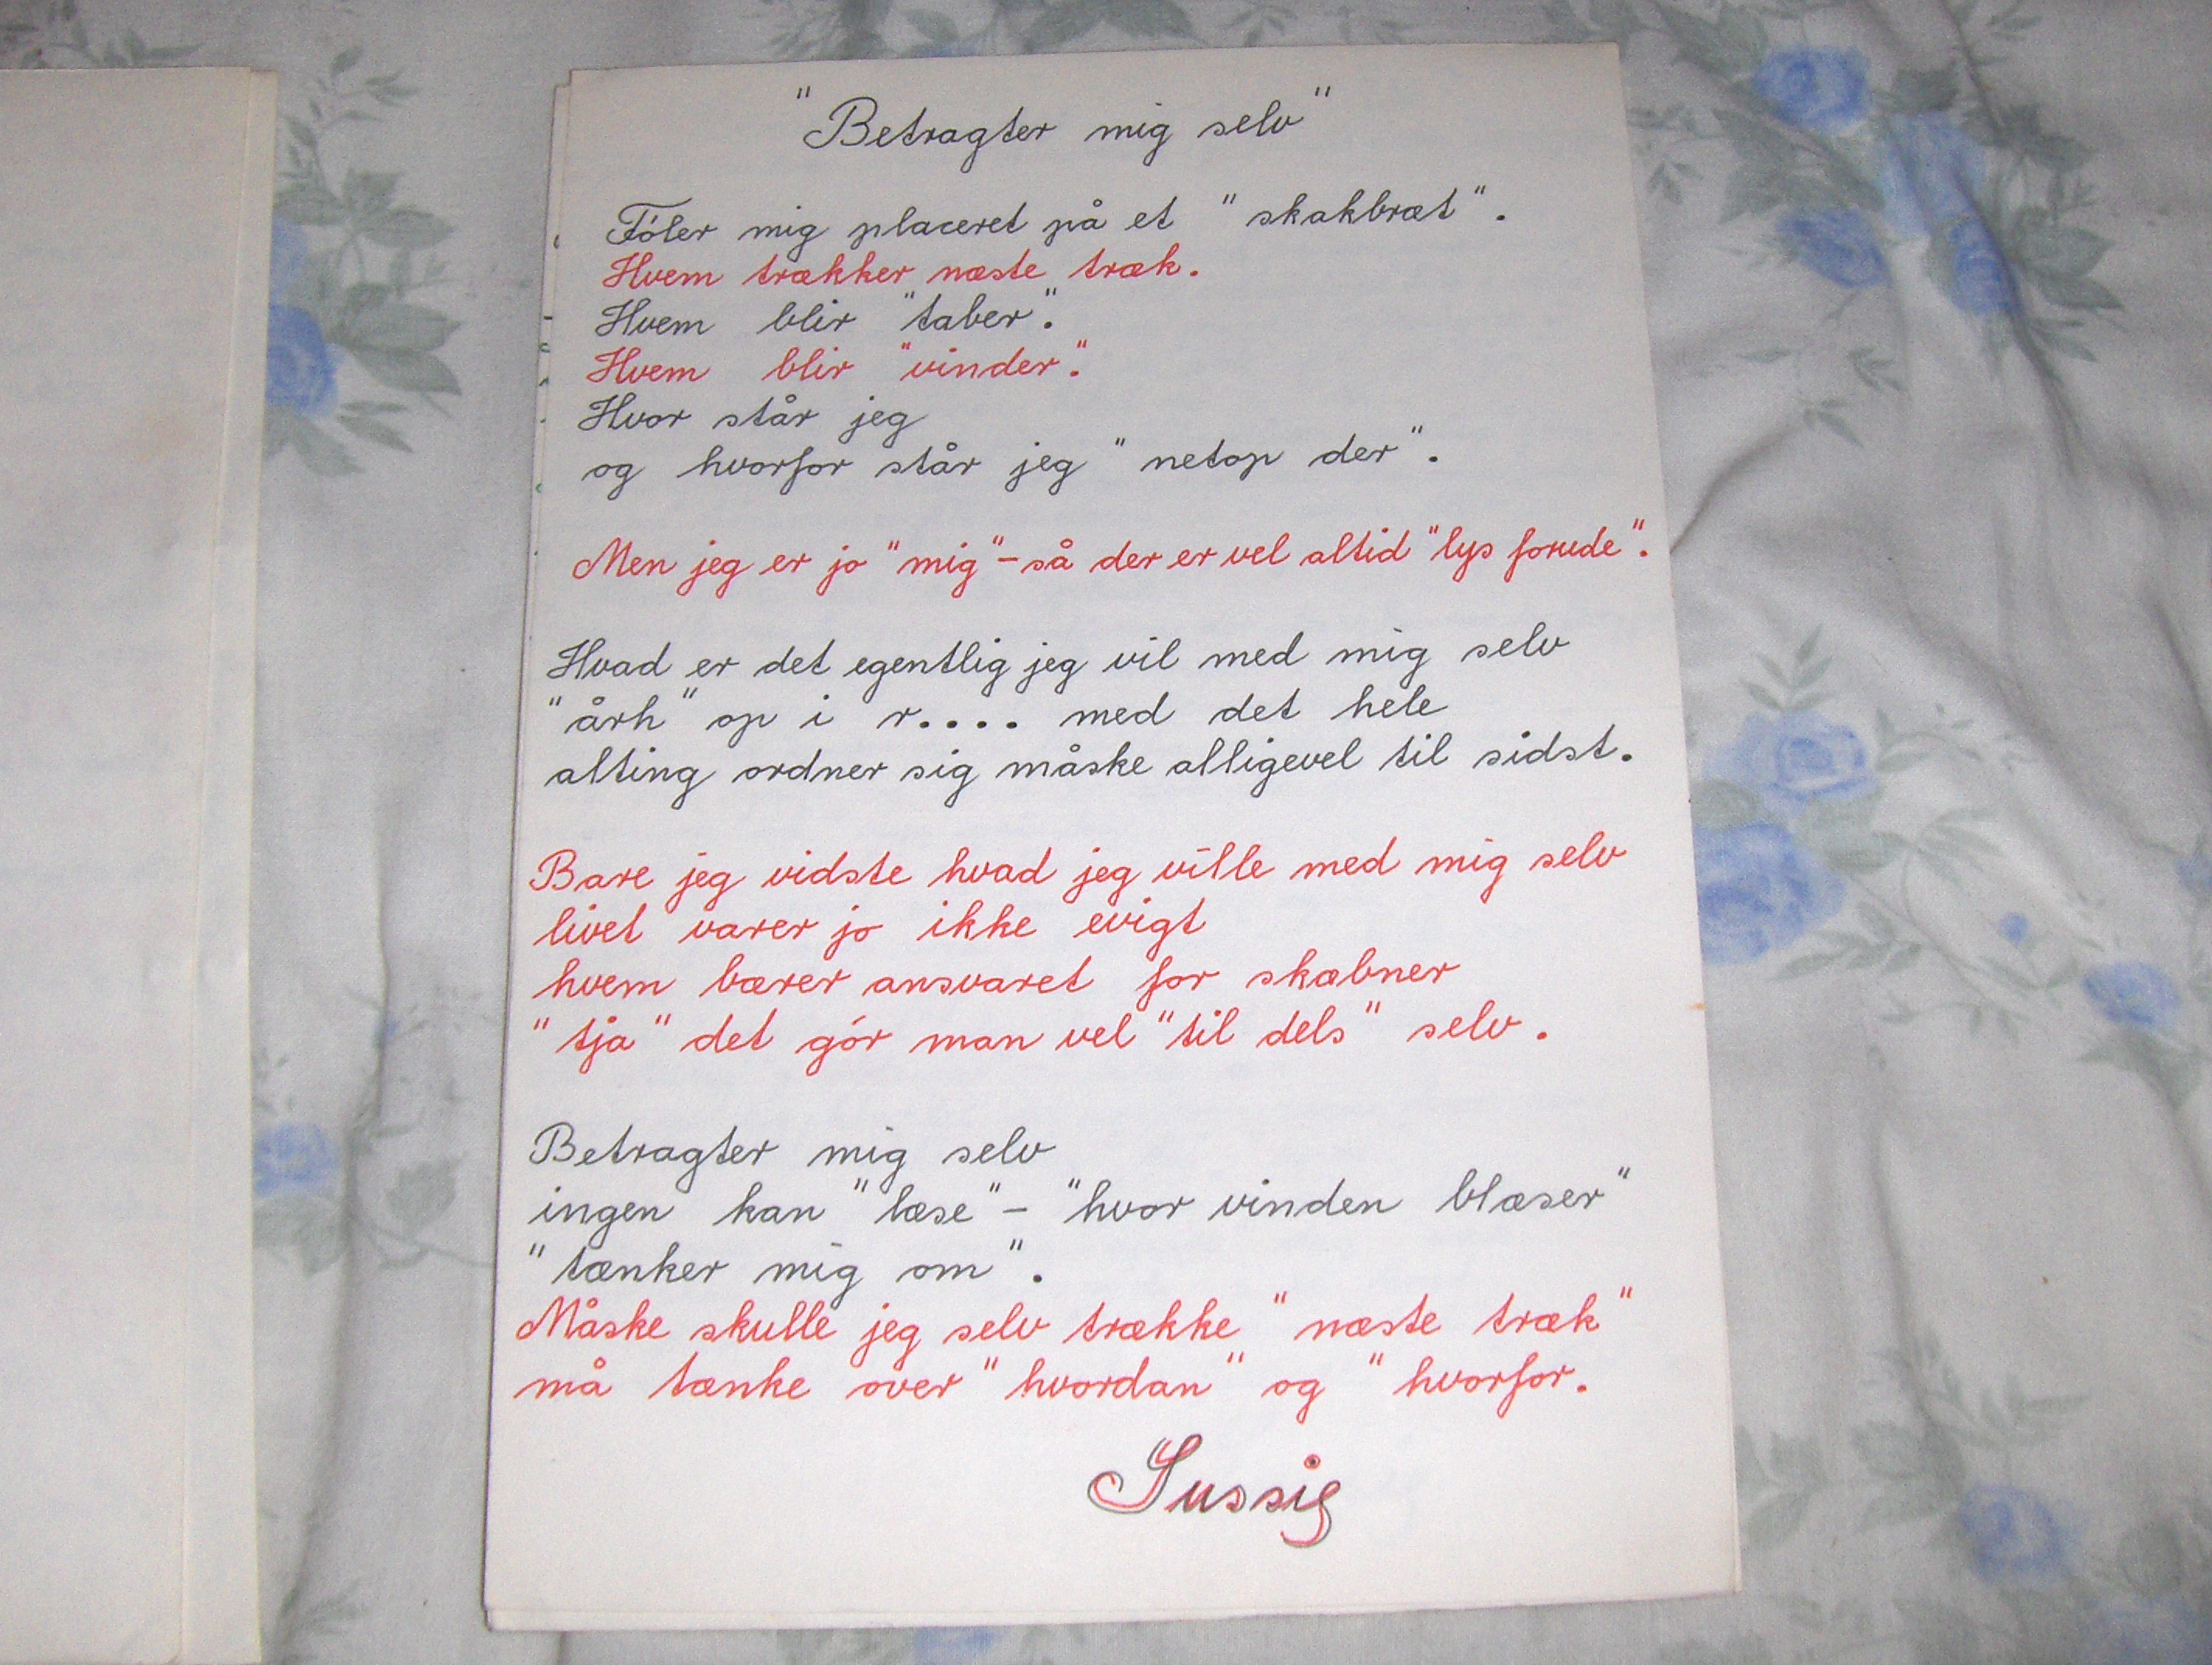 "Betragter mig selv"
Föler mig placeret på et "skakbræt".
Hvem trækker næste træk.
Hvem blir "taber".
Hvem blir "vinder".
Hvor står jeg
og hvorfor står jeg "netop der".
Men jeg er jo "mig" - så der er vel altid "lys forude".
Hvad er det egentlig jeg vil med mig selv
"årh" op i r.... med det hele
alting ordner sig måske alligevel til sidst.
Bare jeg vidste hvad jeg ville med mig selv
livet varer jo ikke evigt
hvem bærer ansvaret for skæbner
"tja" det gór man vel "til dels" selv.
Betragter mig selv
ingen kan "læse" - "hvor vinden blæser"
"tænker mig om".
Måske skulle jeg selv trække "næste træk"
må tænke over "hvordan" og "hvorfor.
Sussig